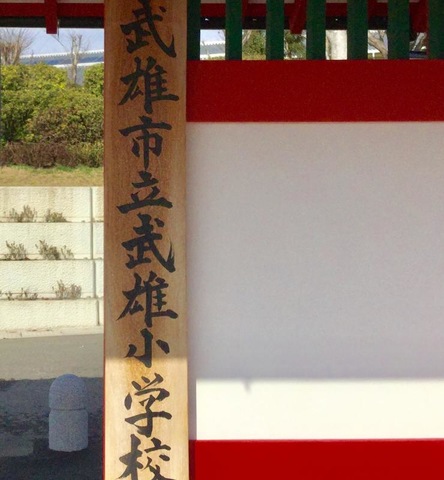 武雄市立武雄小学校